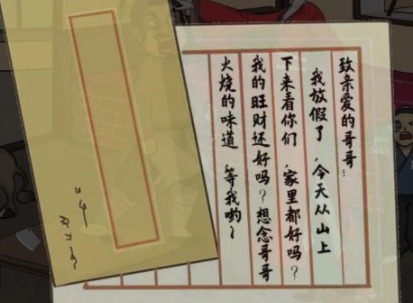 致亲爱的哥哥：
我放假了，今天从山上
下来看你们，家里都好吗？
我的旺财还好吗？想念哥哥
火烧的味道，等我哟～